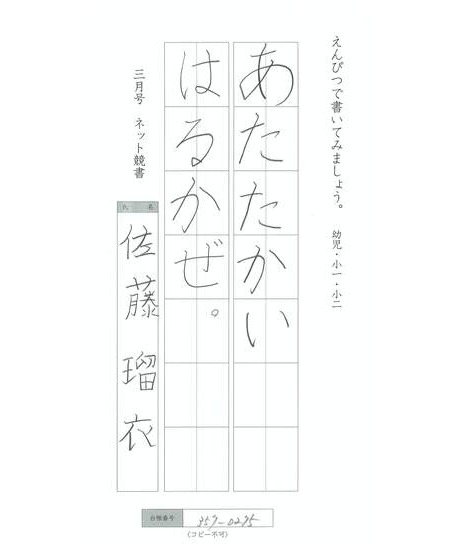 えんぴつで書いてみましょう。 幼児・小一・小二
あたたかい
はるかぜ。
三月号 ネット競書
氏名
佐藤瑠衣
台帳番号 357-0275
(コピー不可)